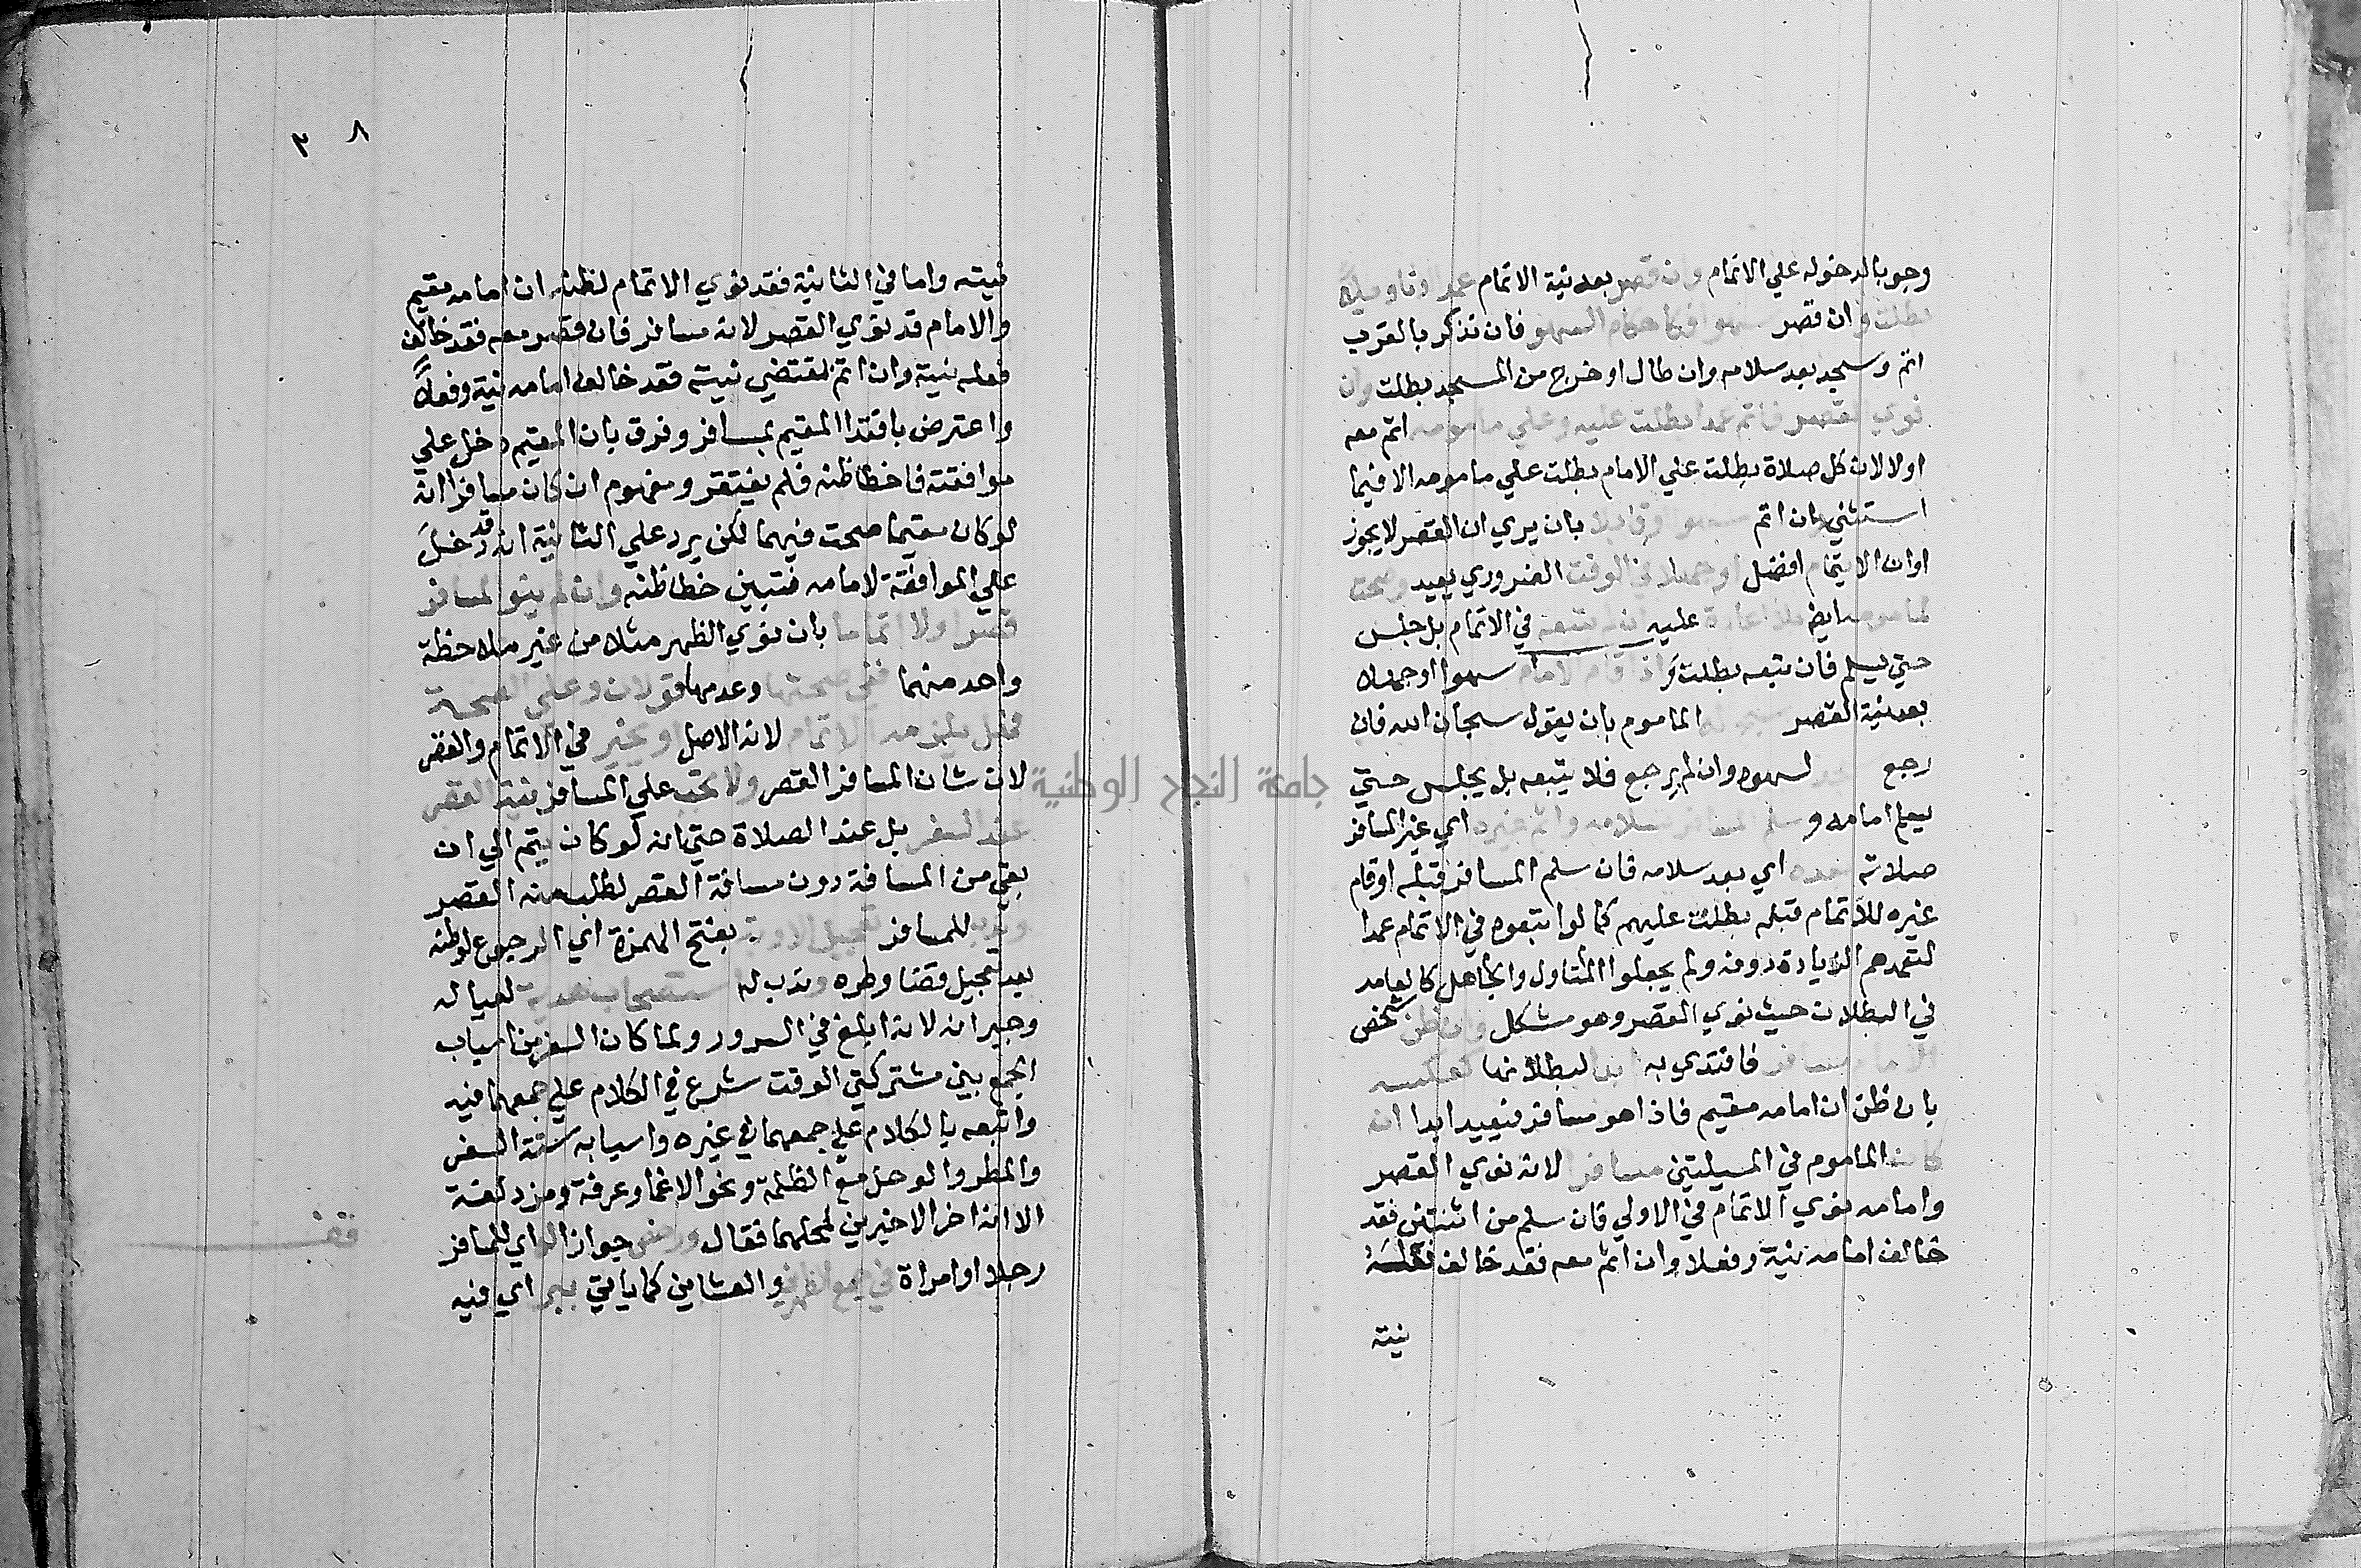 وجوبا لدخوله علي الاتمام وان قصر بعد نية الاتمام عمدا او تاويلا
بطلت وان قصر سهوا فكاحكام السهو فان تذكر بالقرب
اتم وسجد بعد سلامه وان طال او خرج من المسجد بطلت وان
نوي القصر فاتم عمدا بطلت عليه وعلي مامومه اتم معه
اولا لان كل صلاة بطلت علي الامام بطلت علي مامومه الا فيما
استثني وان اتم سهوا او تاويلا بان يري ان القصر لا يجوز
اوان الاتمام افضل او جهلا في الوقت الضروري يعيد وصحت
لمامومه بلا اعادة عليه ان لم يتبعه في الاتمام بل جلس
حتي يسلم فان تبعه بطلت واذا قام الامام سهوا او جهلا
بعد نية القصر الماموم بان يقول سبحان الله فان
رجع سجد لسهوه وان لم يرجع فلا يتبعه بل يجلس حتي
يسلم امامه وسلم المسافر بسلامه واتم غيره اي غير المسافر
صلاته بعده اي بعد سلامه فان سلم المسافر قبله او قام
غيره للاتمام قبله بطلت عليهم كما لو اتبعوه في الاتمام عمدا
لتعمدهم الزيادة دونه ولم يجعلوا المتاول والجاهل كالعامد
في البطلان حيث نوي القصر وهو مشكل وان ظن شخص
الامام مسافر فاقتدي به ابدا لبطلانها كعكسه
بان ظن ان امامه مقيم فاذا هو مسافر فيعيد ابدا ان
كان الماموم في المسيلتين مسافرا لانه نوي القصر
وامامه نوي الاتمام في الاولي فان سلم من اثنتين فقد
خالف امامه نية وفعلا وان اتم معه فقد خالف فعله
نيته
٣٨
نيته واما في الثانية فقد نوي الاتمام لظنه ان امامه مقيم
والامام قد نوي القصر لانه مسافر فان قصر معه فقد خالف
فعله نيته وان اتم لمقتضي نيته فقد خالف امامه نية وفعلا
واعترض باقتدا المقيم بمسافر وفرق بان المقيم دخل علي
موافقته فاخطا ظنه فلم يغتفر ومفهوم ان كان مسافرا انه
لو كان مقيما صحت فيهما لكن يرد علي الثانية انه قد دخل
علي الموافقة لامامه فتبين خطا ظنه وان لم ينو المسافر
قصرا ولا اتماما بان نوي الظهر مثلا من غير ملاحظة
واحد منهما ففي صحتها وعدمها قولان وعلي الصحة
فهل يلزمه الاتمام لانه الاصل او يخير في الاتمام والقصر
لان شان المسافر القصر ولا تجب علي المسافر نية القصر
عند السفر بل عند الصلاة حتي انه لو كان يتم الي ان
بقي من المسافة دون مسافة القصر لطلب منه القصر
وندب للمسافر تعجيل الاوبة بفتح الهمزة اي الرجوع لوطنه
بعد تعجيل قضا وطره وندب له استصحاب هدية لعياله
وجيرانه لانه ابلغ في السرور ولما كان السفر من اسباب
الجمع بين مشتركتي الوقت شرع في الكلام علي جمعهما فيه
واتبعه بالكلام علي جمعهما في غيره واسبابه ستة السفر
والمطر والوحل مع الظلمة ونحو الاغما وعرفة ومزدلفة
الا انه اخر الاخيرين لمحلهما فقال ورخص جوازا اي للمسافر
رجلا او امراة في جمع الظهرين والعشاين كما ياتي ببر اي فيه
قف
جامعة النجاح الوطنية